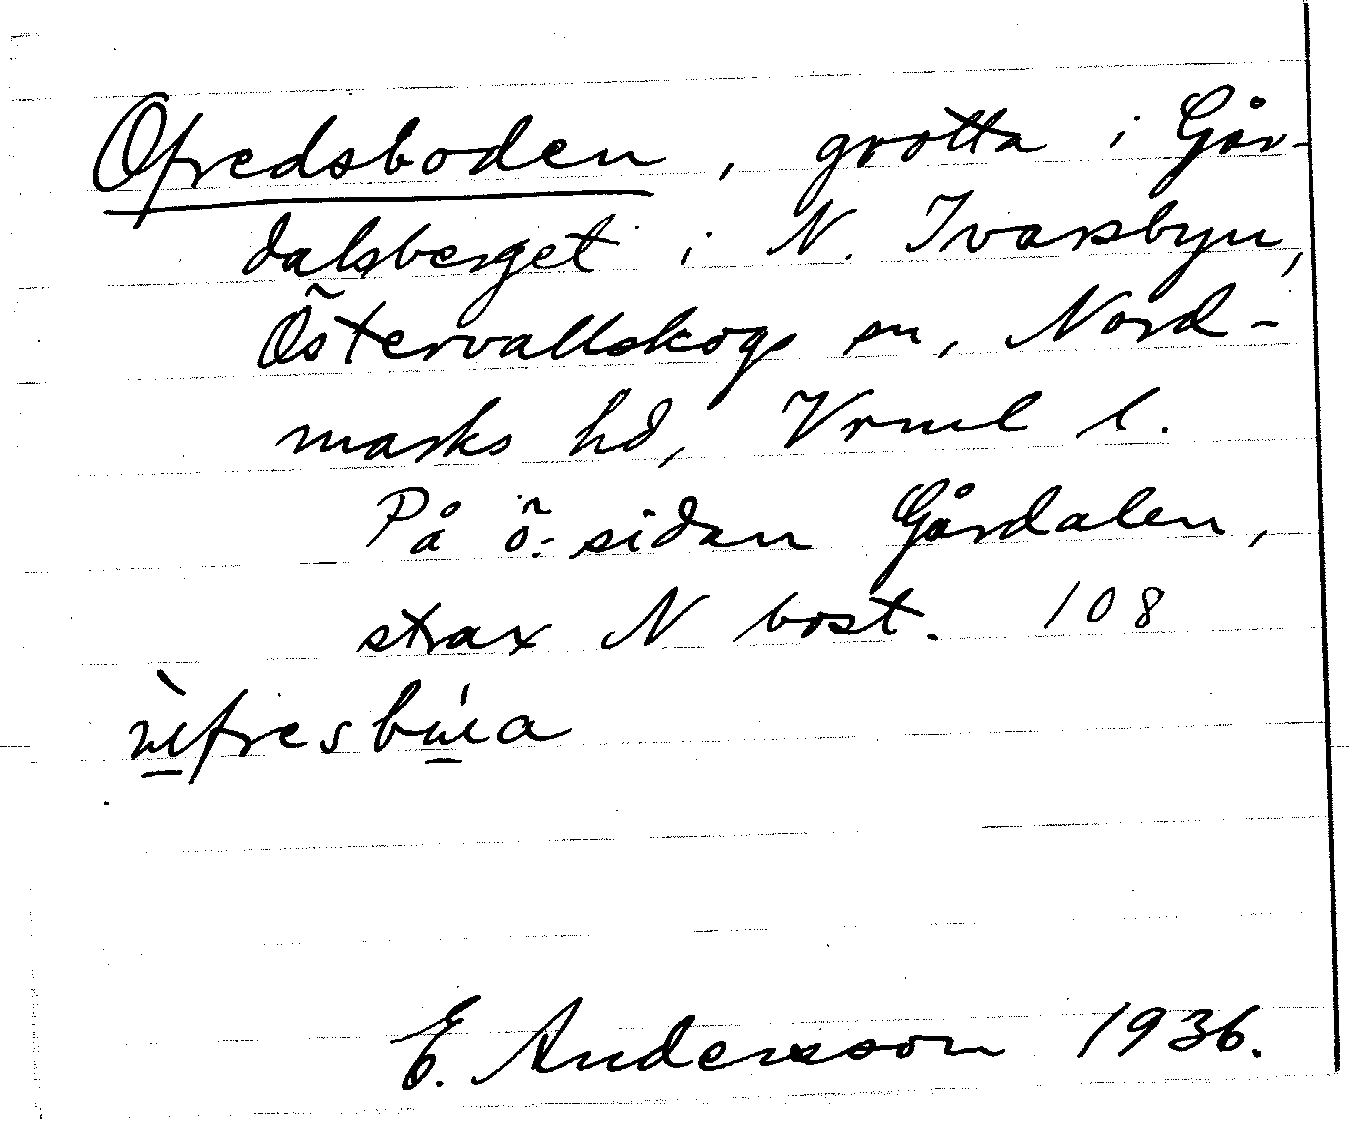 Ofredsboden, grotta i Går-
dalsberget i N. Ivarsbyn,
Östervallskogs sn, Nord-
marks hd, Vrml l.
På ö. sidan Gårdalen,
strax N bost. 108
E. Andersson 1936.